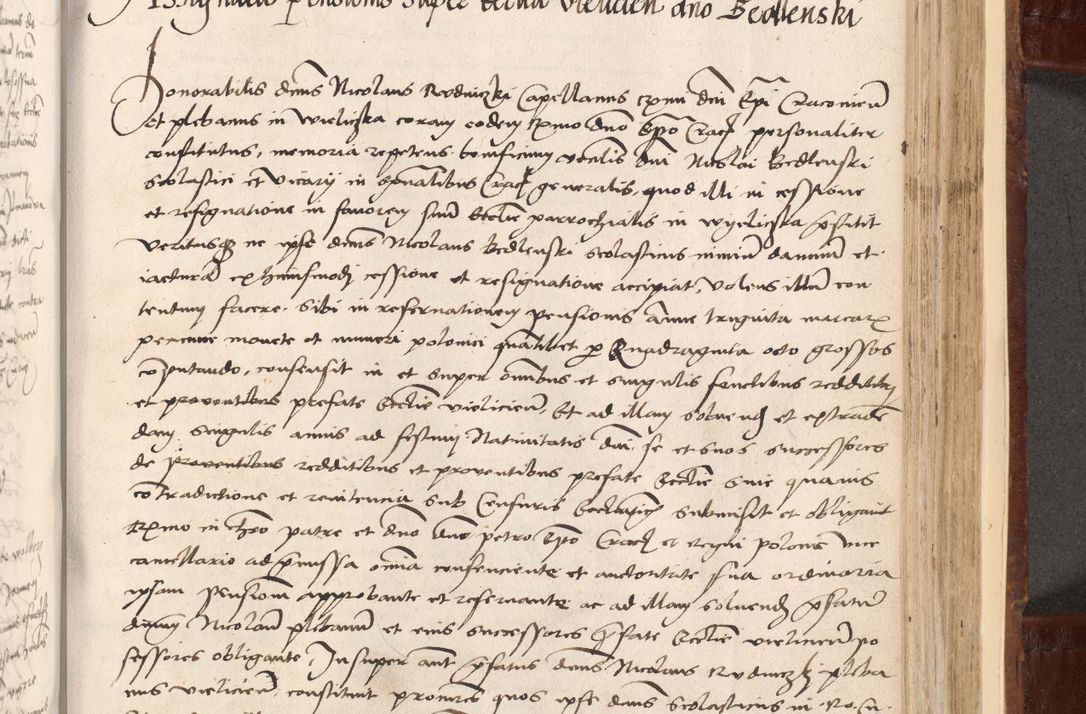 Assignacio pensionis super ecclia Vieliciens dno Bedlenski
Honorabilis dnus Nicolaus Rudniczki Capellanus rmi dni Epi Cracoviens
et plebanus in Wieliczka coram eodem Rmo dno Epo Crac personaliter
constitutus, memoria repetens beneficium venlis dni Nicolai Bedlenski
scolastici et vicarii in spualibus Crac generalis, quod illi in cessione
et resignatione in favorem suum ecclie parrochialis in Wyeliczka prestitit
veritusq ne ipse dnus Nicolaus Bedlenski scolasticus nimium damnum et
iacturam ex huiusmodi cessione et resignatione accipiat, volens illum con
tentum facere, sibi in reservationem pensionis annue triginta marcar
pecunie monete et numeri polonici quamlibet p quadraginta octo grossos
computando, consensit in et super omnibus et singulis fructibus redditibus
et proventibus prefate ecclie vieliciens, Et ad illam solvend et extraden
dam singulis annis ad festum Nativitatis dni se et suos successores
de proventibus redditibus et proventibus prefate ecclie sine quavis
contradictione et renitencia sub censuris ecclesiasticis submisit et obligavit
Rmo in chro patre et dno dno petro Epo Crac et regni polonie vice
cancellario ad premissa omnia consenciente et auctoritate sua ordinaria
ipsam pensionem approbante et reservante ac ad illam solvend prefatum
dnum Nicolaum plebanum et eius successores prefate ecclie vieliciens po
sessores obligante, Insuper ant prefatus dnus Nicolaus Rudniczki pleba
nus vieliciens, constituit procures quos ipse dnus scolasticus in Ro. cu.